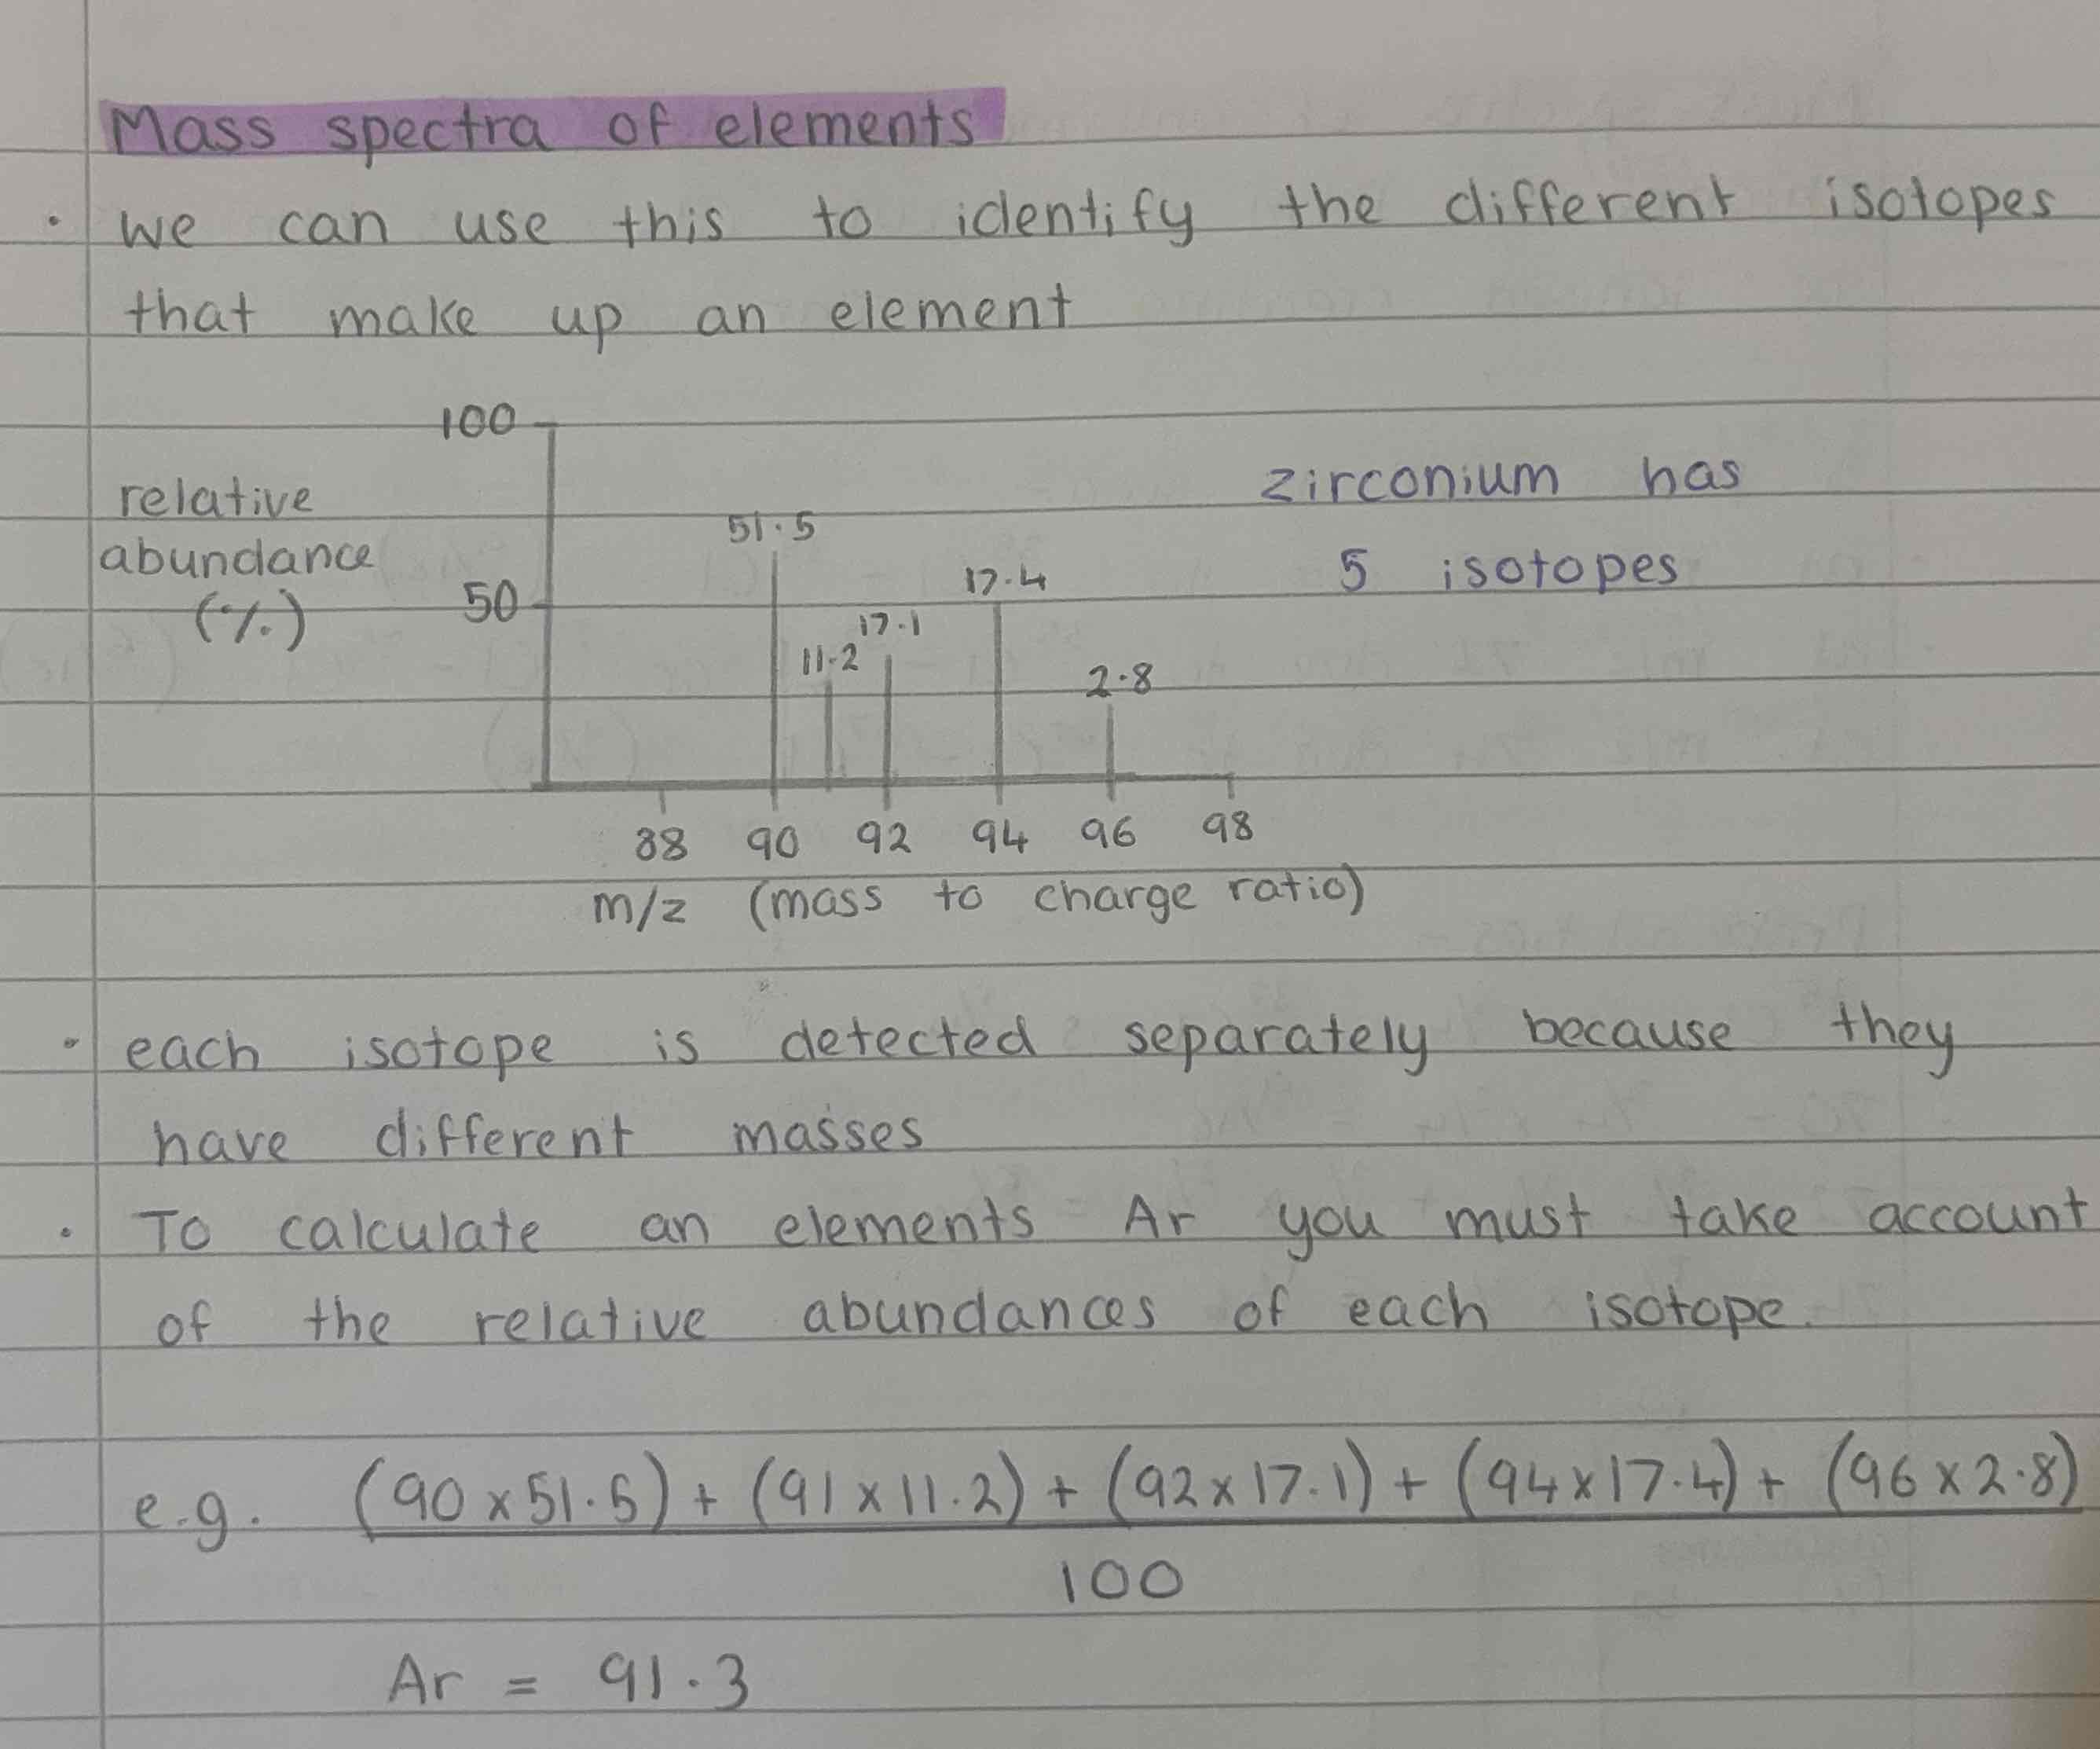 Mass spectra of elements
• we can use this to identify the different isotopes
that make up an element
100
relative
abundance
(%)
50
51.5
11.2
17.1
17.4
2.8
zirconium has
5 isotopes
88 90 92 94 96 98
m/z (mass to charge ratio)
• each isotope is detected separately because they
have different masses
• To calculate an elements Ar you must take account
of the relative abundances of each isotope.
e.g. (90 x 51.5) + (91 x 11.2) + (92 x 17.1) + (94 x 17.4) + (96 x 2.8)
100
Ar = 91.3